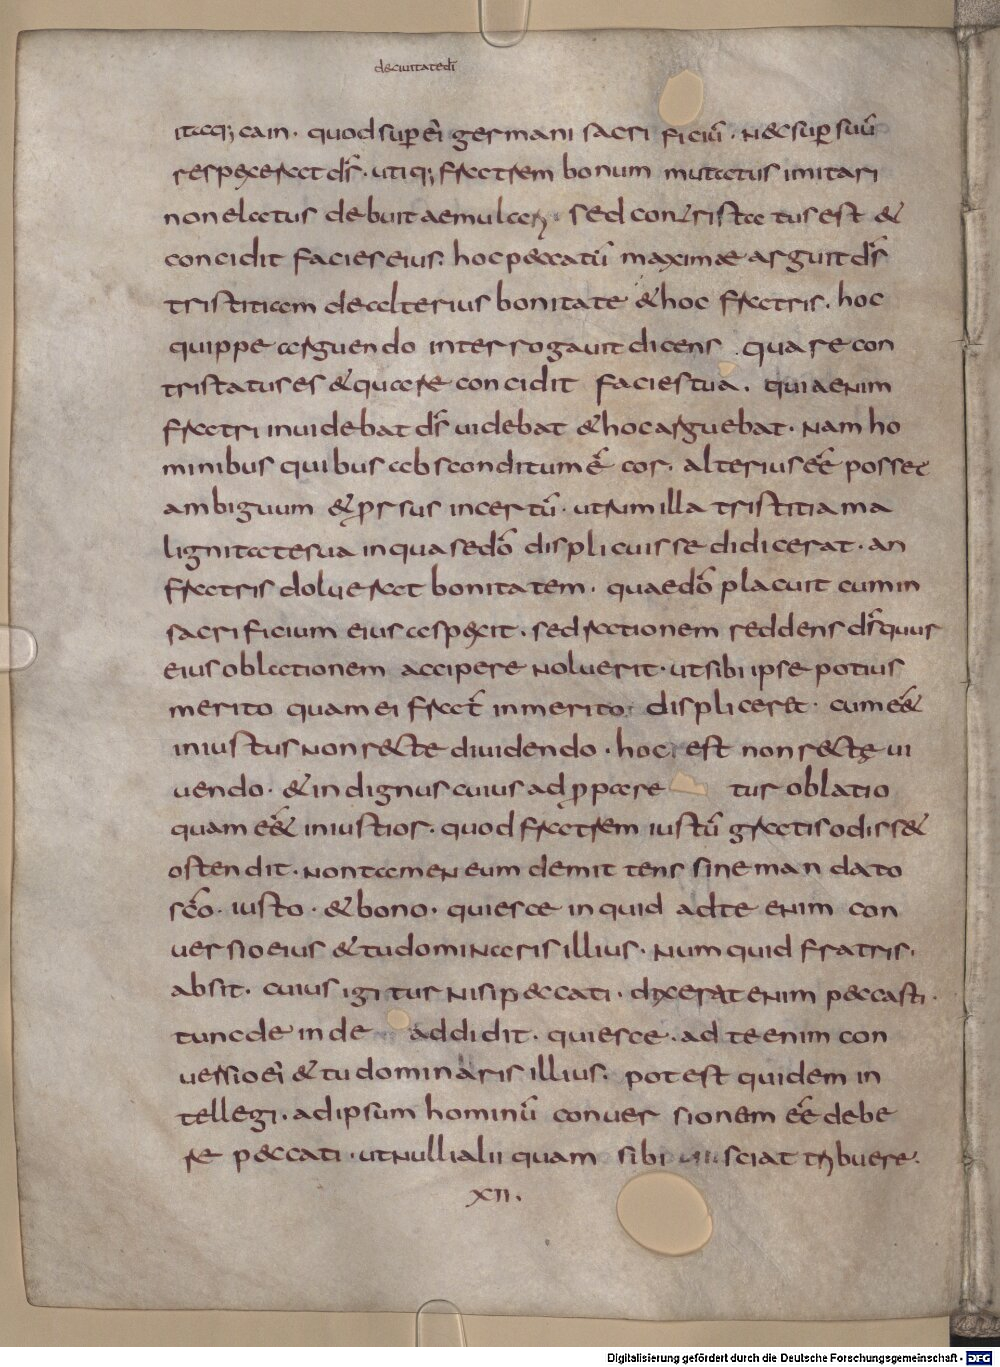 deciuitatedī
itaq; cain. quod sup eī germani sacri ficiū. nec sup suū
respexerat dS̄. utiq; fratrem bonum mutatus imitari
non elatus debuit aemulari. sed contristatus est &
concidit facies eius. hoc peccatū maximae arguit dS̄
tristitiam de alterius bonitate & hoc fratris. hoc
quippe arguendo interrogauit dicens. quare con
tristatus es & quare concidit facies tua. quia enim
fratri inuidebat dS̄ uidebat & hoc arguebat. nam ho
minibus quibus absconditum ē cor. alterius eē posset
ambiguum & prsus incertū. utrum illa tristitia ma
lignitatesua in qua sedō displicuisse didicerat. an
fratris doluerat bonitatem. quae dō placuit cum in
sacrificium eius aspexit. sed rationem reddens dS̄ quur
eius oblationem accipere noluerit. ut sibi ipse potius
merito quam ei frater̄ inmerito displiceret. cum eē&
iniustus non recte diuidendo. hoc est non recte ui
uendo. & indignus cuius adpparetur oblatio
quam eē& iniustior. quod fratrem iustū gratis odiss&
ostendit. non tamen eum demittens sine mandato
scō. iusto. & bono. quiesce inquid ad te enim con
uersio eius & tu dominaris illius. num quid fratris.
absit. cuius igitur nisi peccati. dixerat enim peccasti.
tunc deinde addidit. quiesce. ad te enim con
uersio eī & tu dominaris illius. potest quidem in
tellegi. ad ipsum hominū conuersionem eē debe
re peccati. ut nulli alii quam sibi sciat tribuere.
XII.
Digitalisierung gefördert durch die Deutsche Forschungsgemeinschaft - DFG